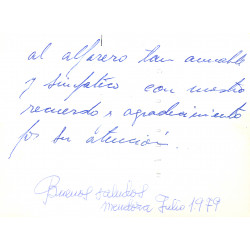 al alfarero tan amable
y simpático con nuestro
recuerdo y agradecimiento
por su atención.
Buenos saludos
Mendoza Julio 1979